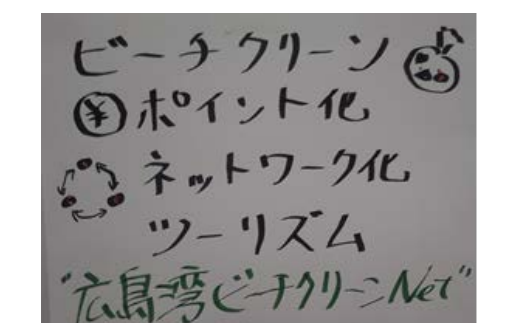 ビーチクリーン
¥ポイント化
ネットワーク化
ツーリズム
"広島湾ビーチクリーンNet"